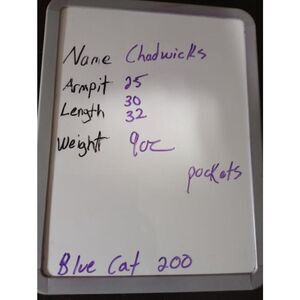 Name Chadwicks
Armpit 25
Length 30
32
Weight 9oz
pockets
Blue Cat 200